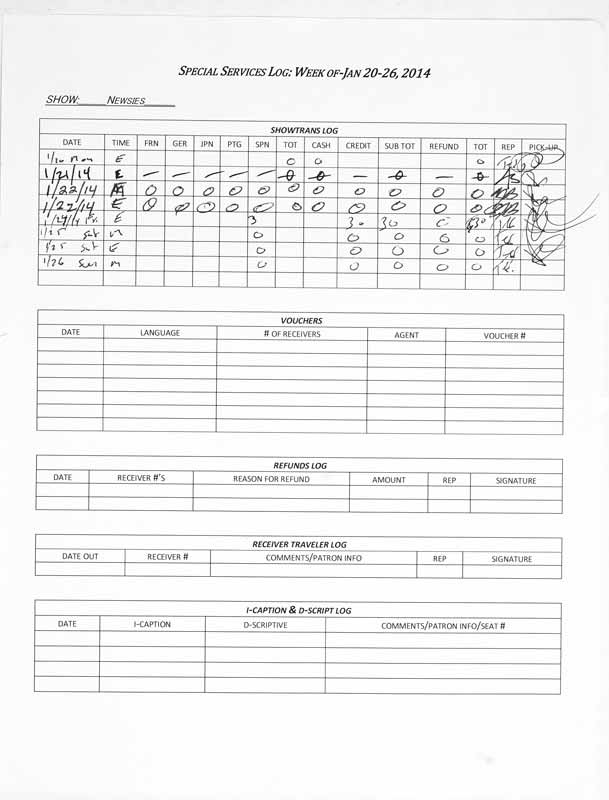 SPECIAL SERVICES LOG: WEEK OF-JAN 20-26, 2014
SHOW: NEWSIES
SHOWTRANS LOG
DATE TIME FRN GER JPN PTG SPN TOT CASH CREDIT SUB TOT REFUND TOT REP PICK-UP
Mon E 0 0 0
1/21/14 E — — — — — 0 0 — 0 — 0
1/22/14 0 0 0 0 0 0 0 0 0 0 0
1/22/14 E 0 0 0 0 0 0 0 0 0 0 0
1/24/14 E 3 30 30 0 30
1/25 Sat M 0 0 0 0 0
1/25 Sat E 0 0 0 0 0
1/26 Sun M 0 0 0 0 0
VOUCHERS
DATE LANGUAGE # OF RECEIVERS AGENT VOUCHER #
REFUNDS LOG
DATE RECEIVER #'S REASON FOR REFUND AMOUNT REP SIGNATURE
RECEIVER TRAVELER LOG
DATE OUT RECEIVER # COMMENTS/PATRON INFO REP SIGNATURE
I-CAPTION & D-SCRIPT LOG
DATE I-CAPTION D-SCRIPTIVE COMMENTS/PATRON INFO/SEAT #